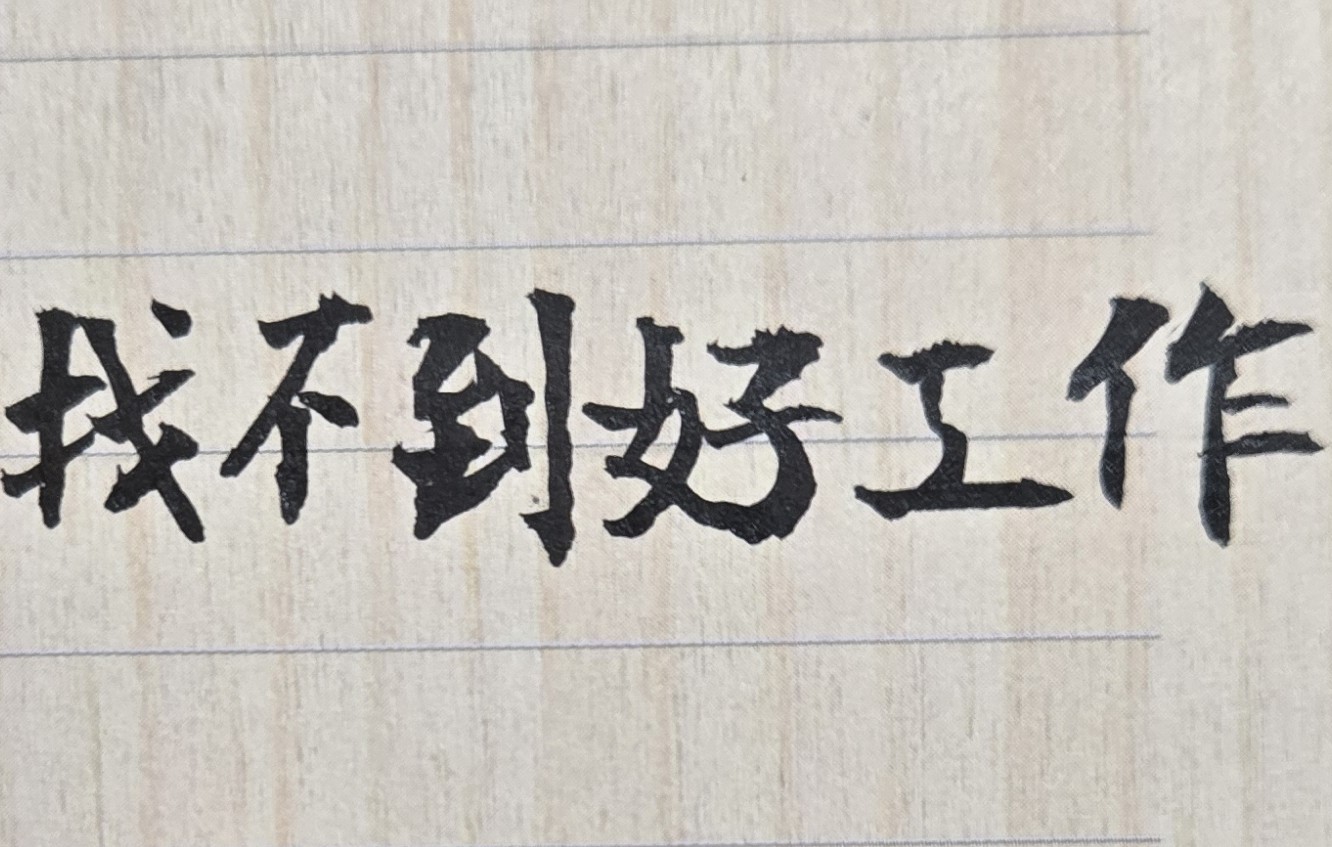 找不到好工作